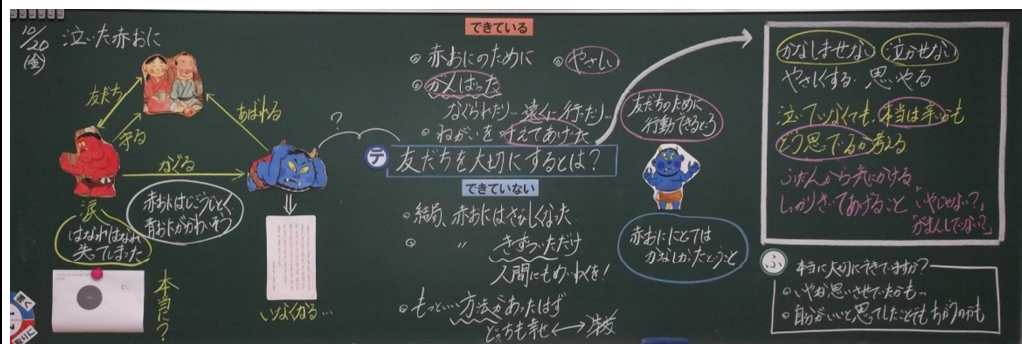 10/20
(金)
泣いた赤おに
友だち
守る
あばれる
なぐる
赤おにはじごうじとく
青おにがかわいそう
涙
はなればなれ
失ってしまった
本当に?
いなくなる…
?
できている
・赤おにのために
・やさしい
・がんばった
なぐられたり…遠くに行ったり…
・ねがいをかなえてあげた
テ
友だちを大切にするとは?
できていない
・結局、赤おにはさみしくなった
・ 〃 きずつけただけ
人間にもめいわくを!
・もっといい方法があったはず
どっちも幸せ
友だちのために
行動できるところ
赤おににとっては
かなしかったということ
かなしませない 泣かせない
やさしくする 思いやる
泣いていなくても、本当は
どう思ってるか考える
ふだんから気にかける
しっかりきいてあげること
いやじゃない?」
がまんしてない?」
ふ
本当に大切にできてますか?
・いやな思いさせていたかも…
・自分がいいと思ってしたことでもちがうのかも